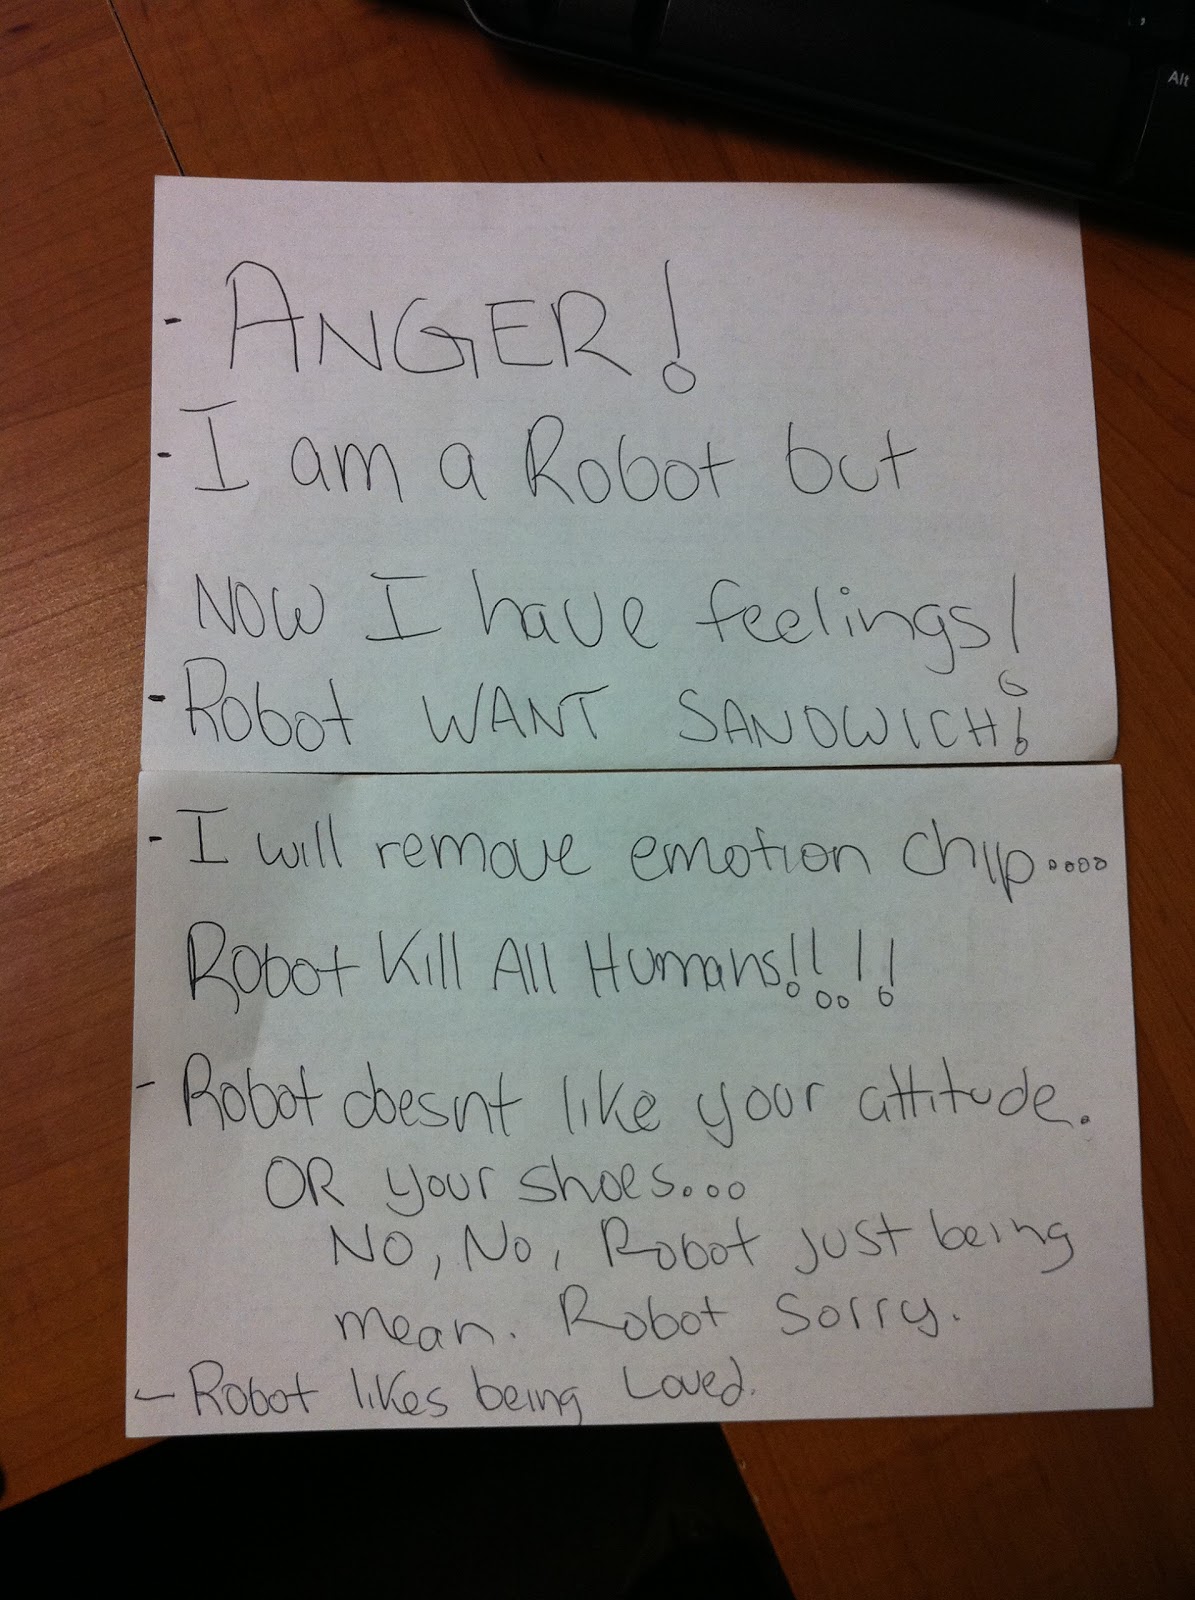 - ANGER!
- I am a Robot but
NOW I have feelings!
- Robot WANT SANDWICH!
- I will remove emotion chip....
Robot Kill All Humans!!!!
- Robot doesnt like your attitude.
OR your shoes...
NO, No, Robot just being
mean. Robot Sorry.
- Robot likes being Loved.
Alt